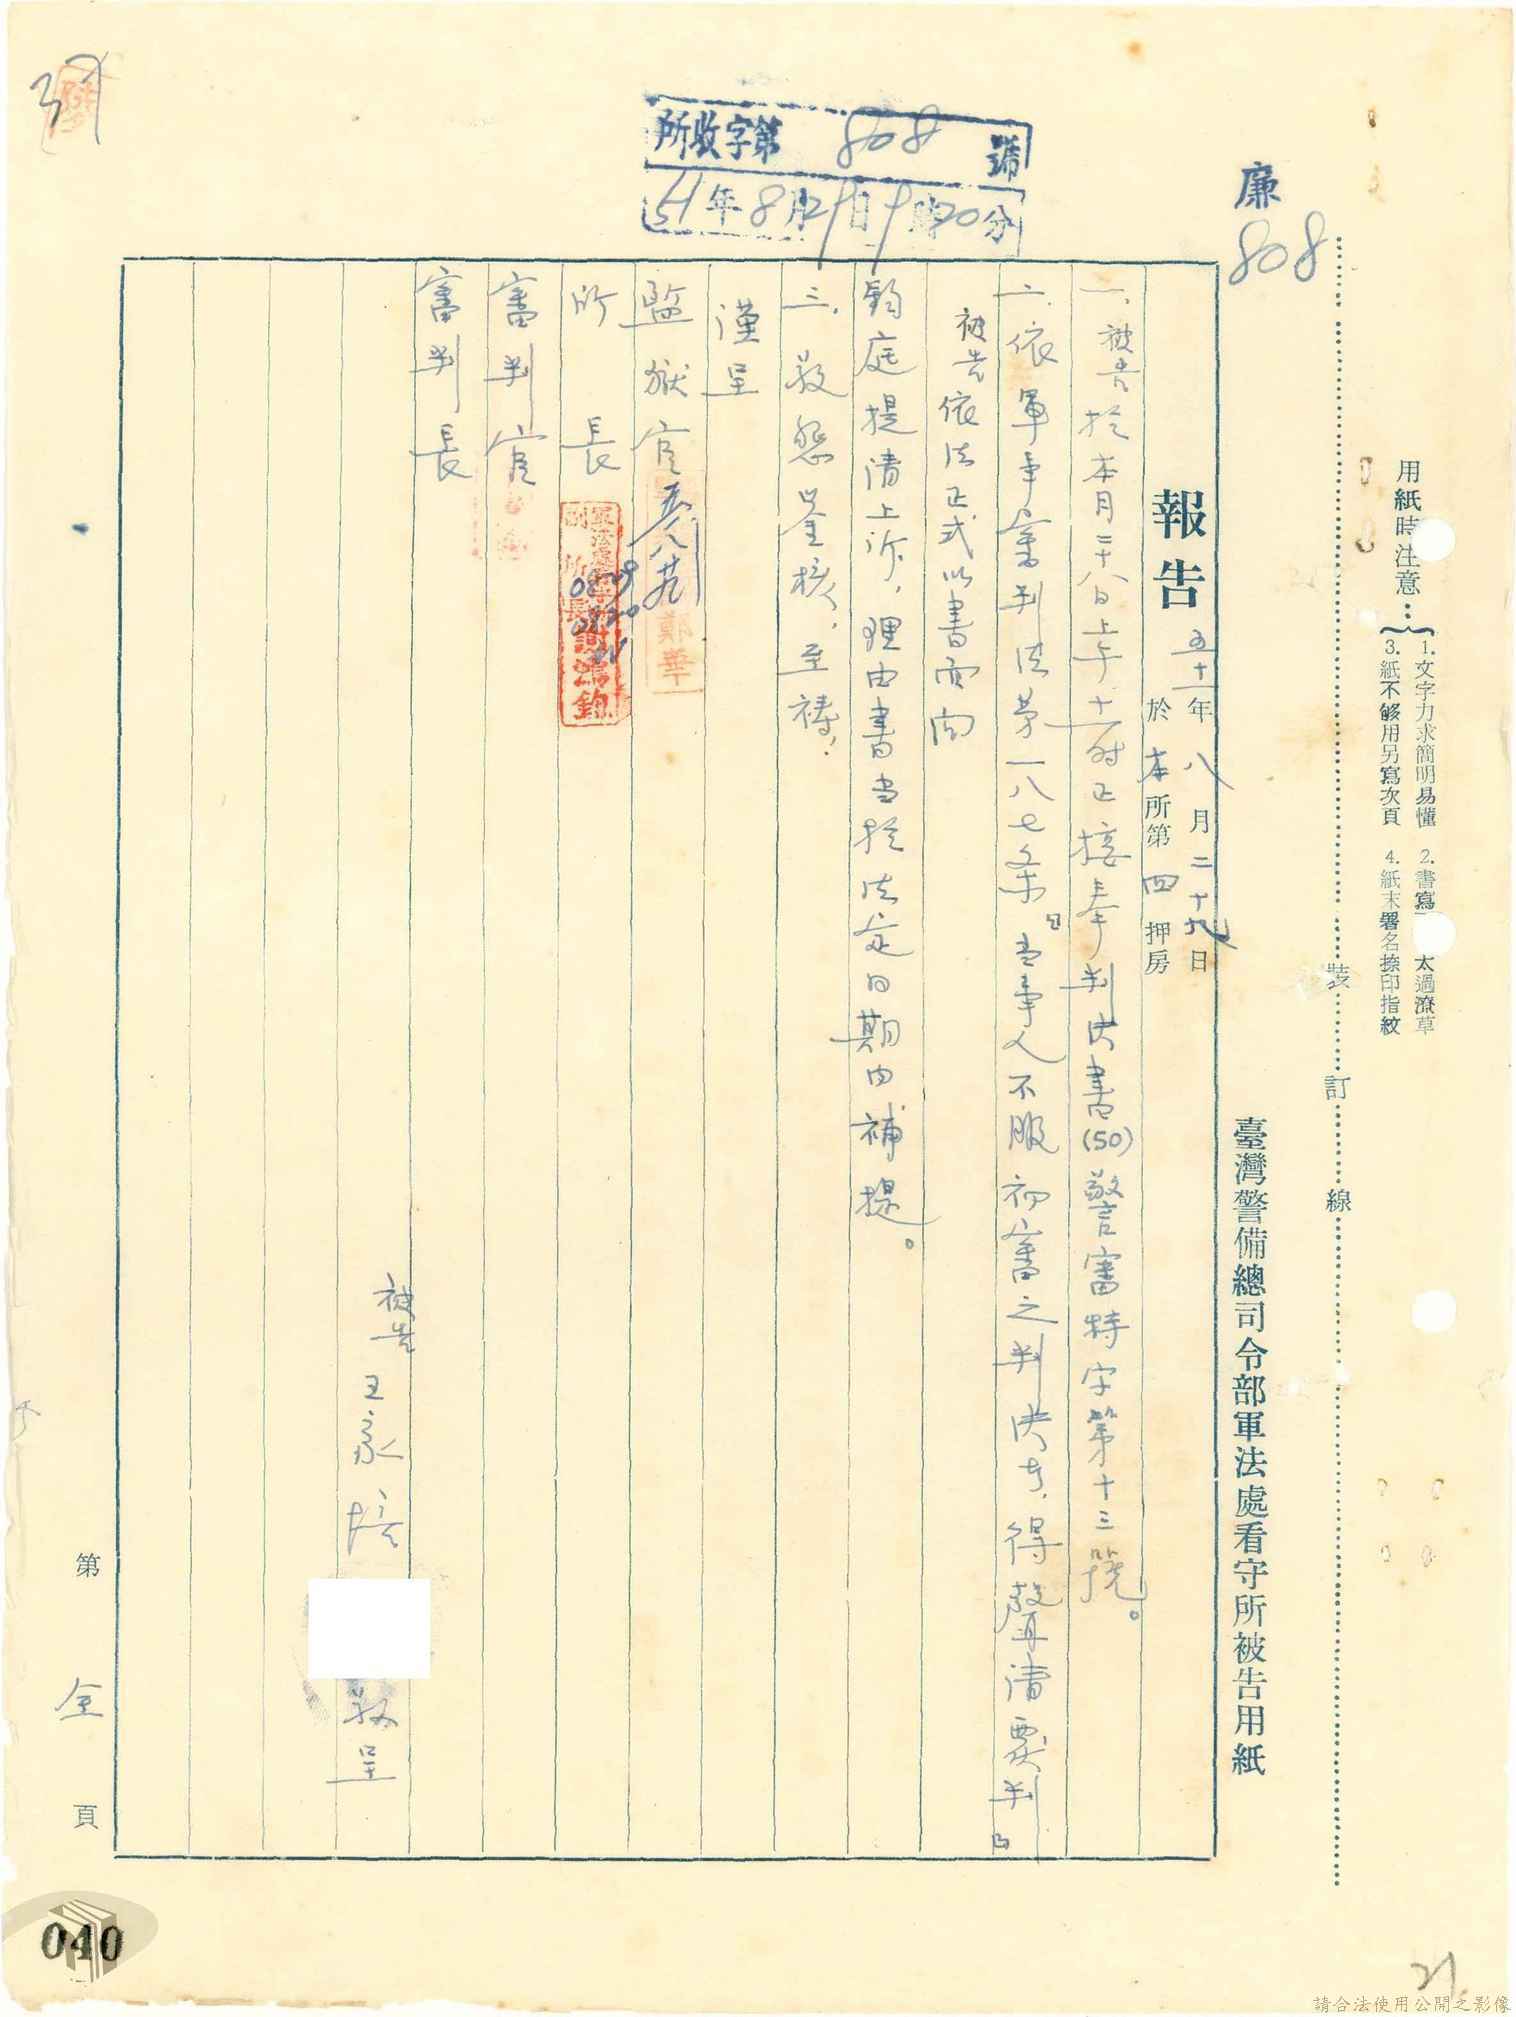 用紙時注意：
1.文字力求簡明易懂 2.書寫 太過潦草
3.紙不够用另寫次頁 4.紙末署名捺印指紋
裝訂線
廉
808
臺灣警備總司令部軍法處看守所被告用紙
所收字第808號
51年8月29日9時20分
報告
五十一年八月二十九日
於本所第四押房
一、被告於本月二十八日上午十一時正接奉判決書(50)警審特字第十三號。
二、依軍事審判法第一八七条「当事人不服初審之判決者,得聲請覆判」
被告依法正式以書面向
鈞庭提請上訴,理由書当於法定日期内補提。
三、敬懇鉴核,至祷!
謹呈
監獄官
所長
審判官
審判長
被告 王家培 敬呈
第全頁
37
040
21
請合法使用公開之影像